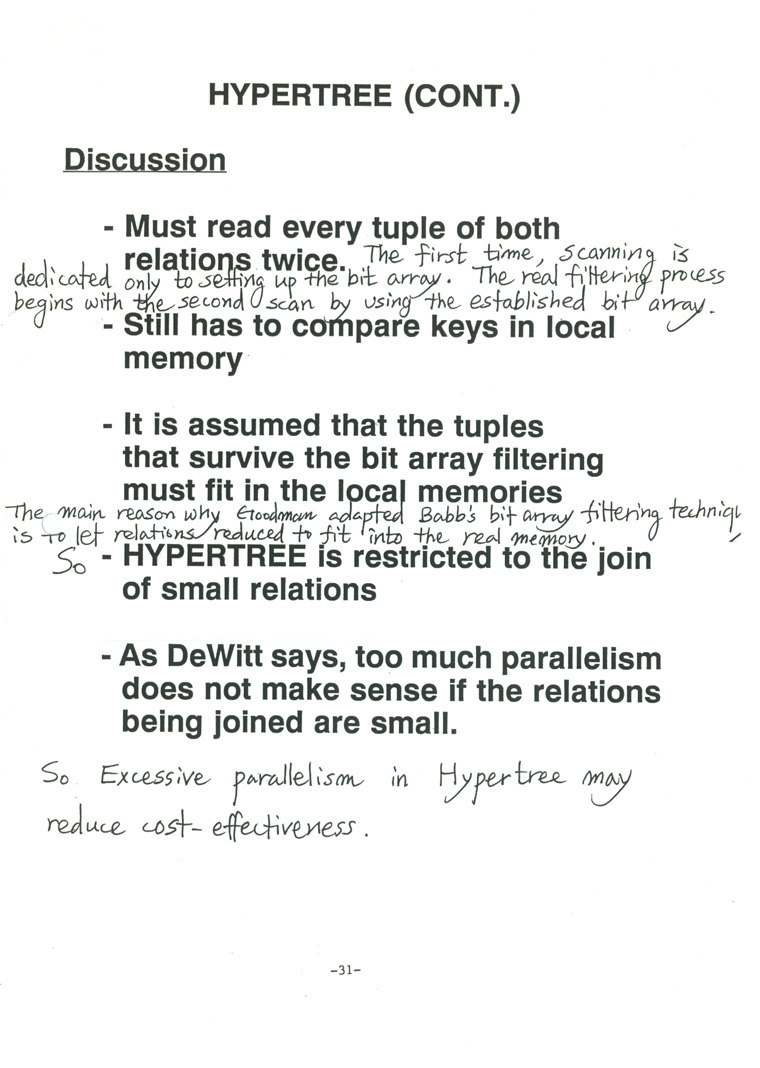 HYPERTREE (CONT.)
Discussion
- Must read every tuple of both
relations twice. The first time, scanning is
dedicated only to setting up the bit array. The real filtering process
begins with the second scan by using the established bit array.
- Still has to compare keys in local
memory
- It is assumed that the tuples
that survive the bit array filtering
must fit in the local memories
The main reason why Goodman adapted Babb's bit array filtering techniqu
is to let relations reduced to fit into the real memory.
So - HYPERTREE is restricted to the join
of small relations
- As DeWitt says, too much parallelism
does not make sense if the relations
being joined are small.
So Excessive parallelism in Hypertree may
reduce cost-effectiveness.
-31-